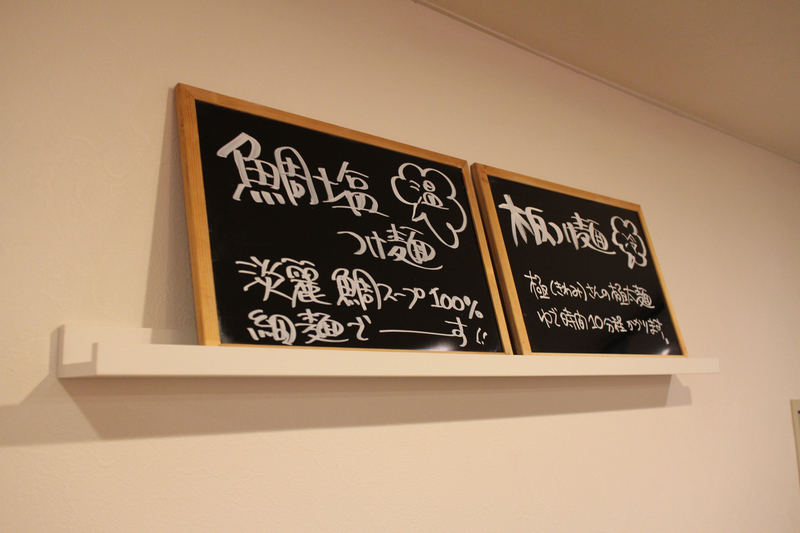 鯛塩
温
つけ麺
淡麗 鯛スープ100%
細麺で――す
極つけ麺
極(きわみ)さんの極太麺
ゆで時間10分程かかります。